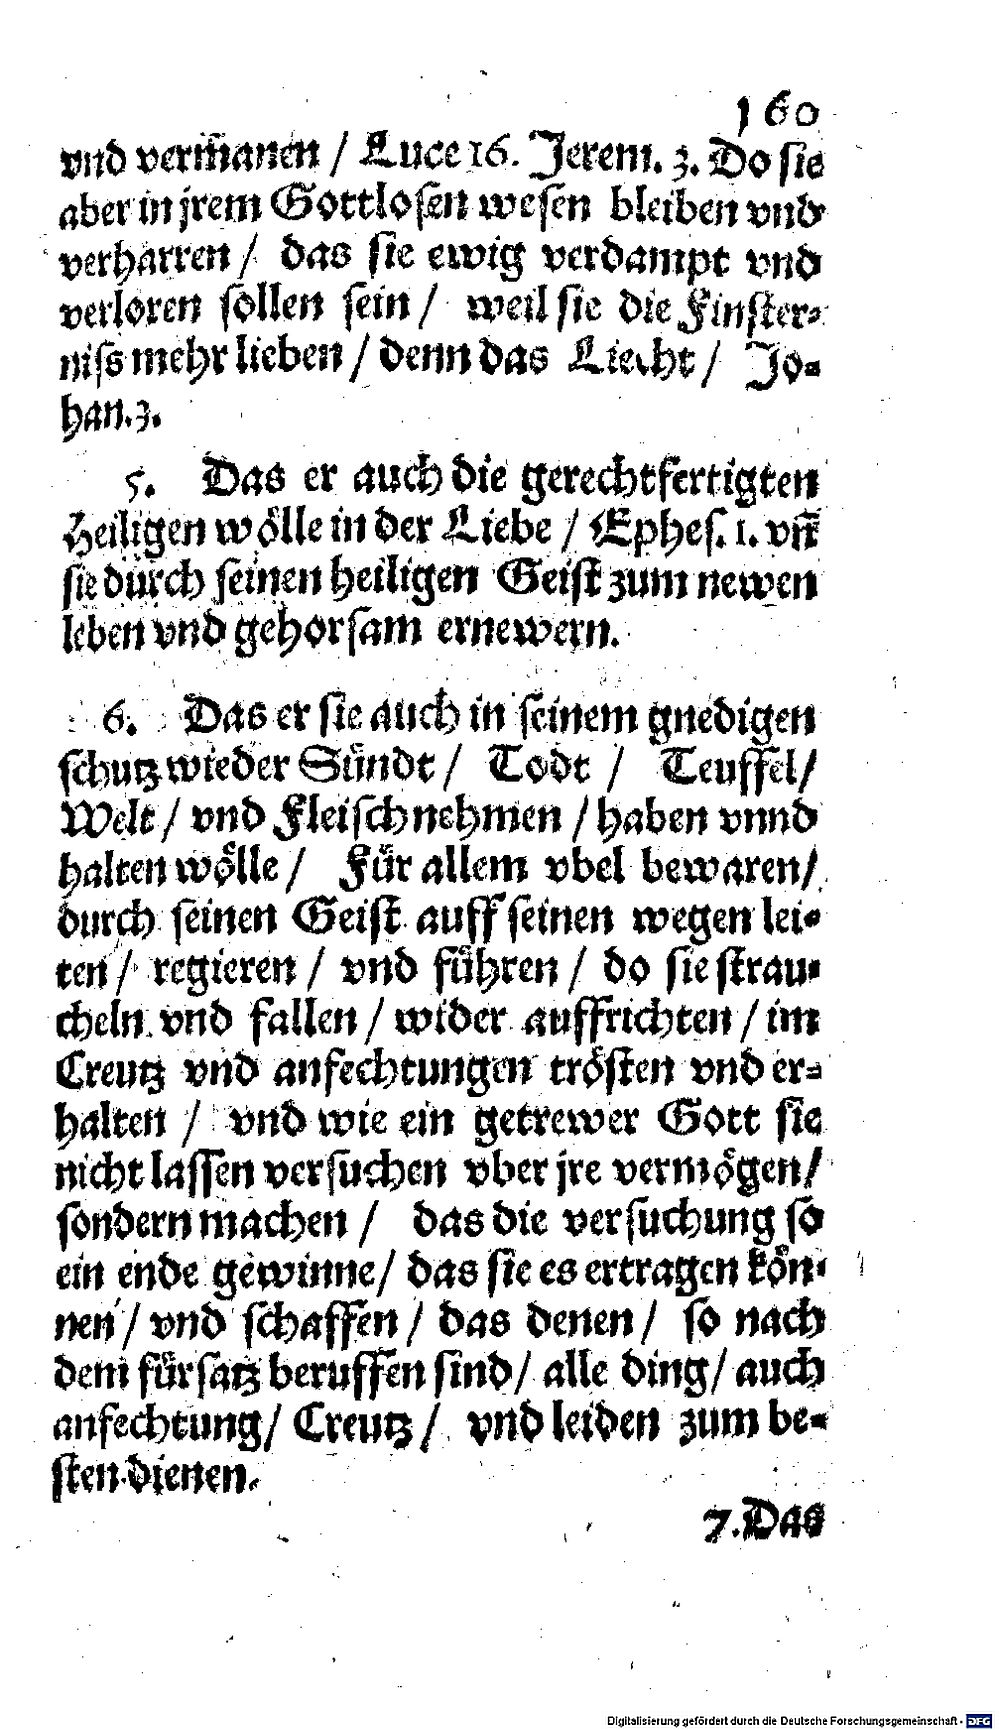 160
vnd verm̃anen / Luce 16. Jerem. 3. Do sie
aber in jrem Gottlosen wesen bleiben vnd
verharren / das sie ewig verdampt vnd
verloren sollen sein / weil sie die Finster-
niſs mehr lieben / denn das Liecht / Jo-
han. 3.
5. Das er auch die gerechtfertigten
Heiligen wölle in der Liebe / Ephes. 1. vñ
sie durch seinen heiligen Geist zum newen
leben vnd gehorsam ernewern.
6. Das er sie auch in seinem gnedigen
schutz wieder Sündt / Todt / Teuffel /
Welt / vnd Fleisch nehmen / haben vnnd
halten wölle / Für allem vbel bewaren /
durch seinen Geist auff seinen wegen lei-
ten / regieren / vnd führen / do sie strau-
cheln vnd fallen / wider auffrichten / im
Creutz vnd anfechtungen trösten vnd er-
halten / vnd wie ein getrewer Gott sie
nicht lassen versuchen vber jre vermögen /
sondern machen / das die versuchung so
ein ende gewinne / das sie es ertragen kön-
nen / vnd schaffen / das denen / so nach
dem fürsatz beruffen sind / alle ding / auch
anfechtung / Creutz / vnd leiden zum be-
sten dienen.
7. Das
Digitalisierung gefördert durch die Deutsche Forschungsgemeinschaft - DFG